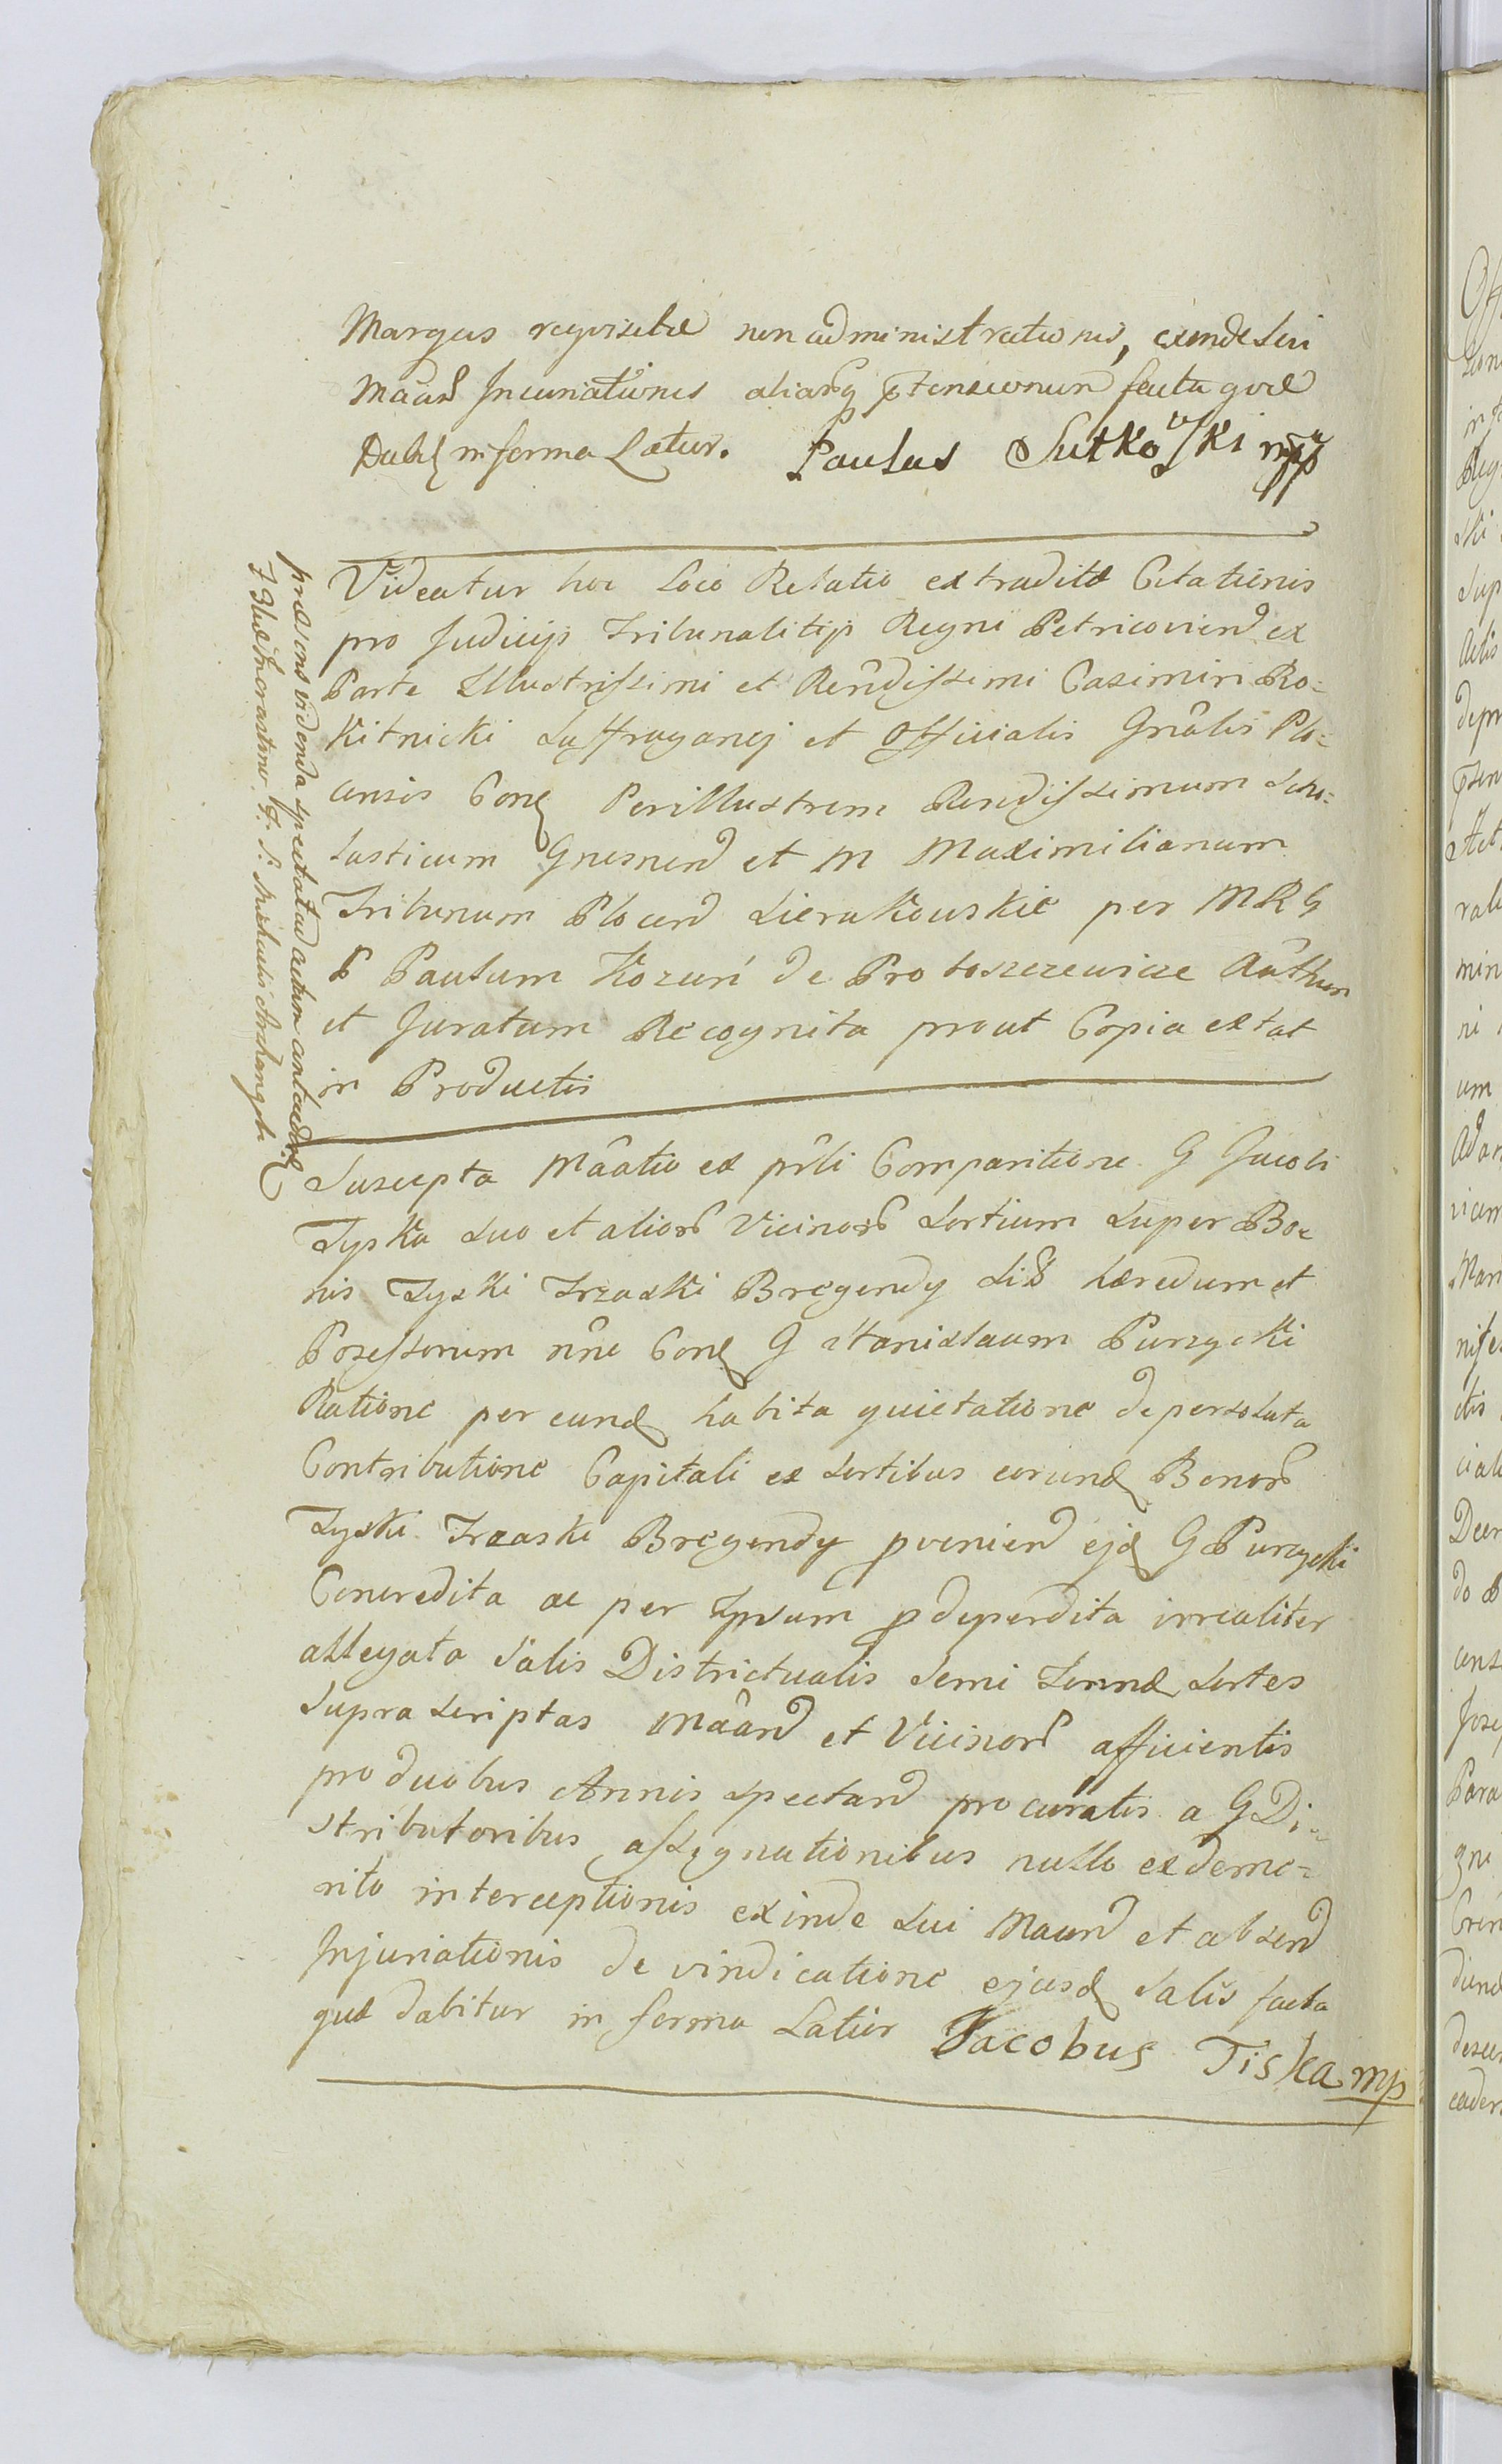 Margas requisitæ non administrationis, exinde sui
Mââs Injuriationis aliarūq prtensionum facta quæ
Dabiɫ in forma Latior. Paulus Sutkowski mpp
Videatur hoc Loco Relatio extraditæ Citationis
pro Judicijs Tribunalitijs Regni Petricovien ex
Parte Illustrissimi et Rendissimi Casimiri Ro=
kitnicki Suffraganej et Officialis Gnâlis Plo=
censis Conɫ Perillustrem Rendissimum Scho=
lasticum Gnesnen et M Maximilianum
Tribunum Plocen Sierakowskie per MRG
P Paulum Kozuń de Protoszczewice Aûthen
et Juratum Recognita prout Copia extat
in Productis
præsens videnda spectat ad actum
F S. Michaelis Archangeli
Suscepta Mâatio ex prli Comparitione G Jacobi
Tyska suo et alior Vicinor Sortium super Bo=
nis Tyski Trzaski Bręgendy sit hæredum et
Possessorum nne Conɫ G Stanislaum Purzycki
Ratione per eund habita quietatione de persoluta
Contributione Capitali ex sortibus eorund Bonor
Tyski Trzaski Bręgendy pvenien ejd G Purzycki
Concredita ac per Ipsum p deperdita irrealiter
allegata Salis Districtualis Semi Tonnæ sortes
supra scriptas Mâan et Vicinor afficientis
pro duobus Annis spectan procuratis a G Di=
stributoribus assignationibus nullo ex deme=
rito interceptionis exinde sui Maan et absen
Injuriationis de vindicatione ejusd Salis facta
quæ dabitur in forma Latior Jacobus Tiska mp